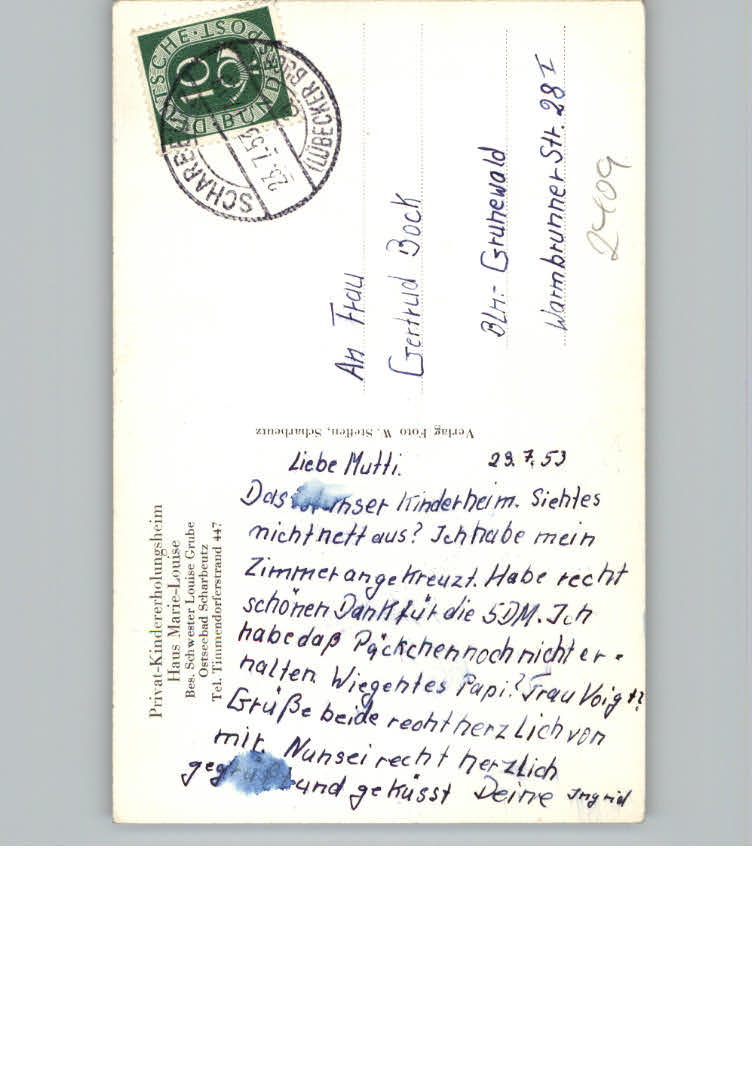 DEUTSCHE BUNDESPOST
10
SCHARBEUTZ
23.7.53
(LÜBECKER BUCHT)
An Frau
Gertrud Bock
Bln.- Grunewald
Warmbrunner Str. 28 I
2409
Verlag Foto W. Steffen, Scharbeutz
Privat-Kindererholungsheim
Haus Marie-Louise
Bes. Schwester Louise Grube
Ostseebad Scharbeutz
Tel. Timmendorferstrand 447
Liebe Mutti. 23.7.53
Das ist unser Kinderheim. Siehtes
nicht nett aus? Ich habe mein
Zimmer angekreuzt. Habe recht
schönen Dank für die 5DM. Ich
habe daß Päckchen noch nicht er-
halten. Wie geht es Papi? Frau Voigt?
Grüße beide recht herzlich von
mir. Nun sei recht herzlich
gegrüßt und geküsst Deine Ingrid